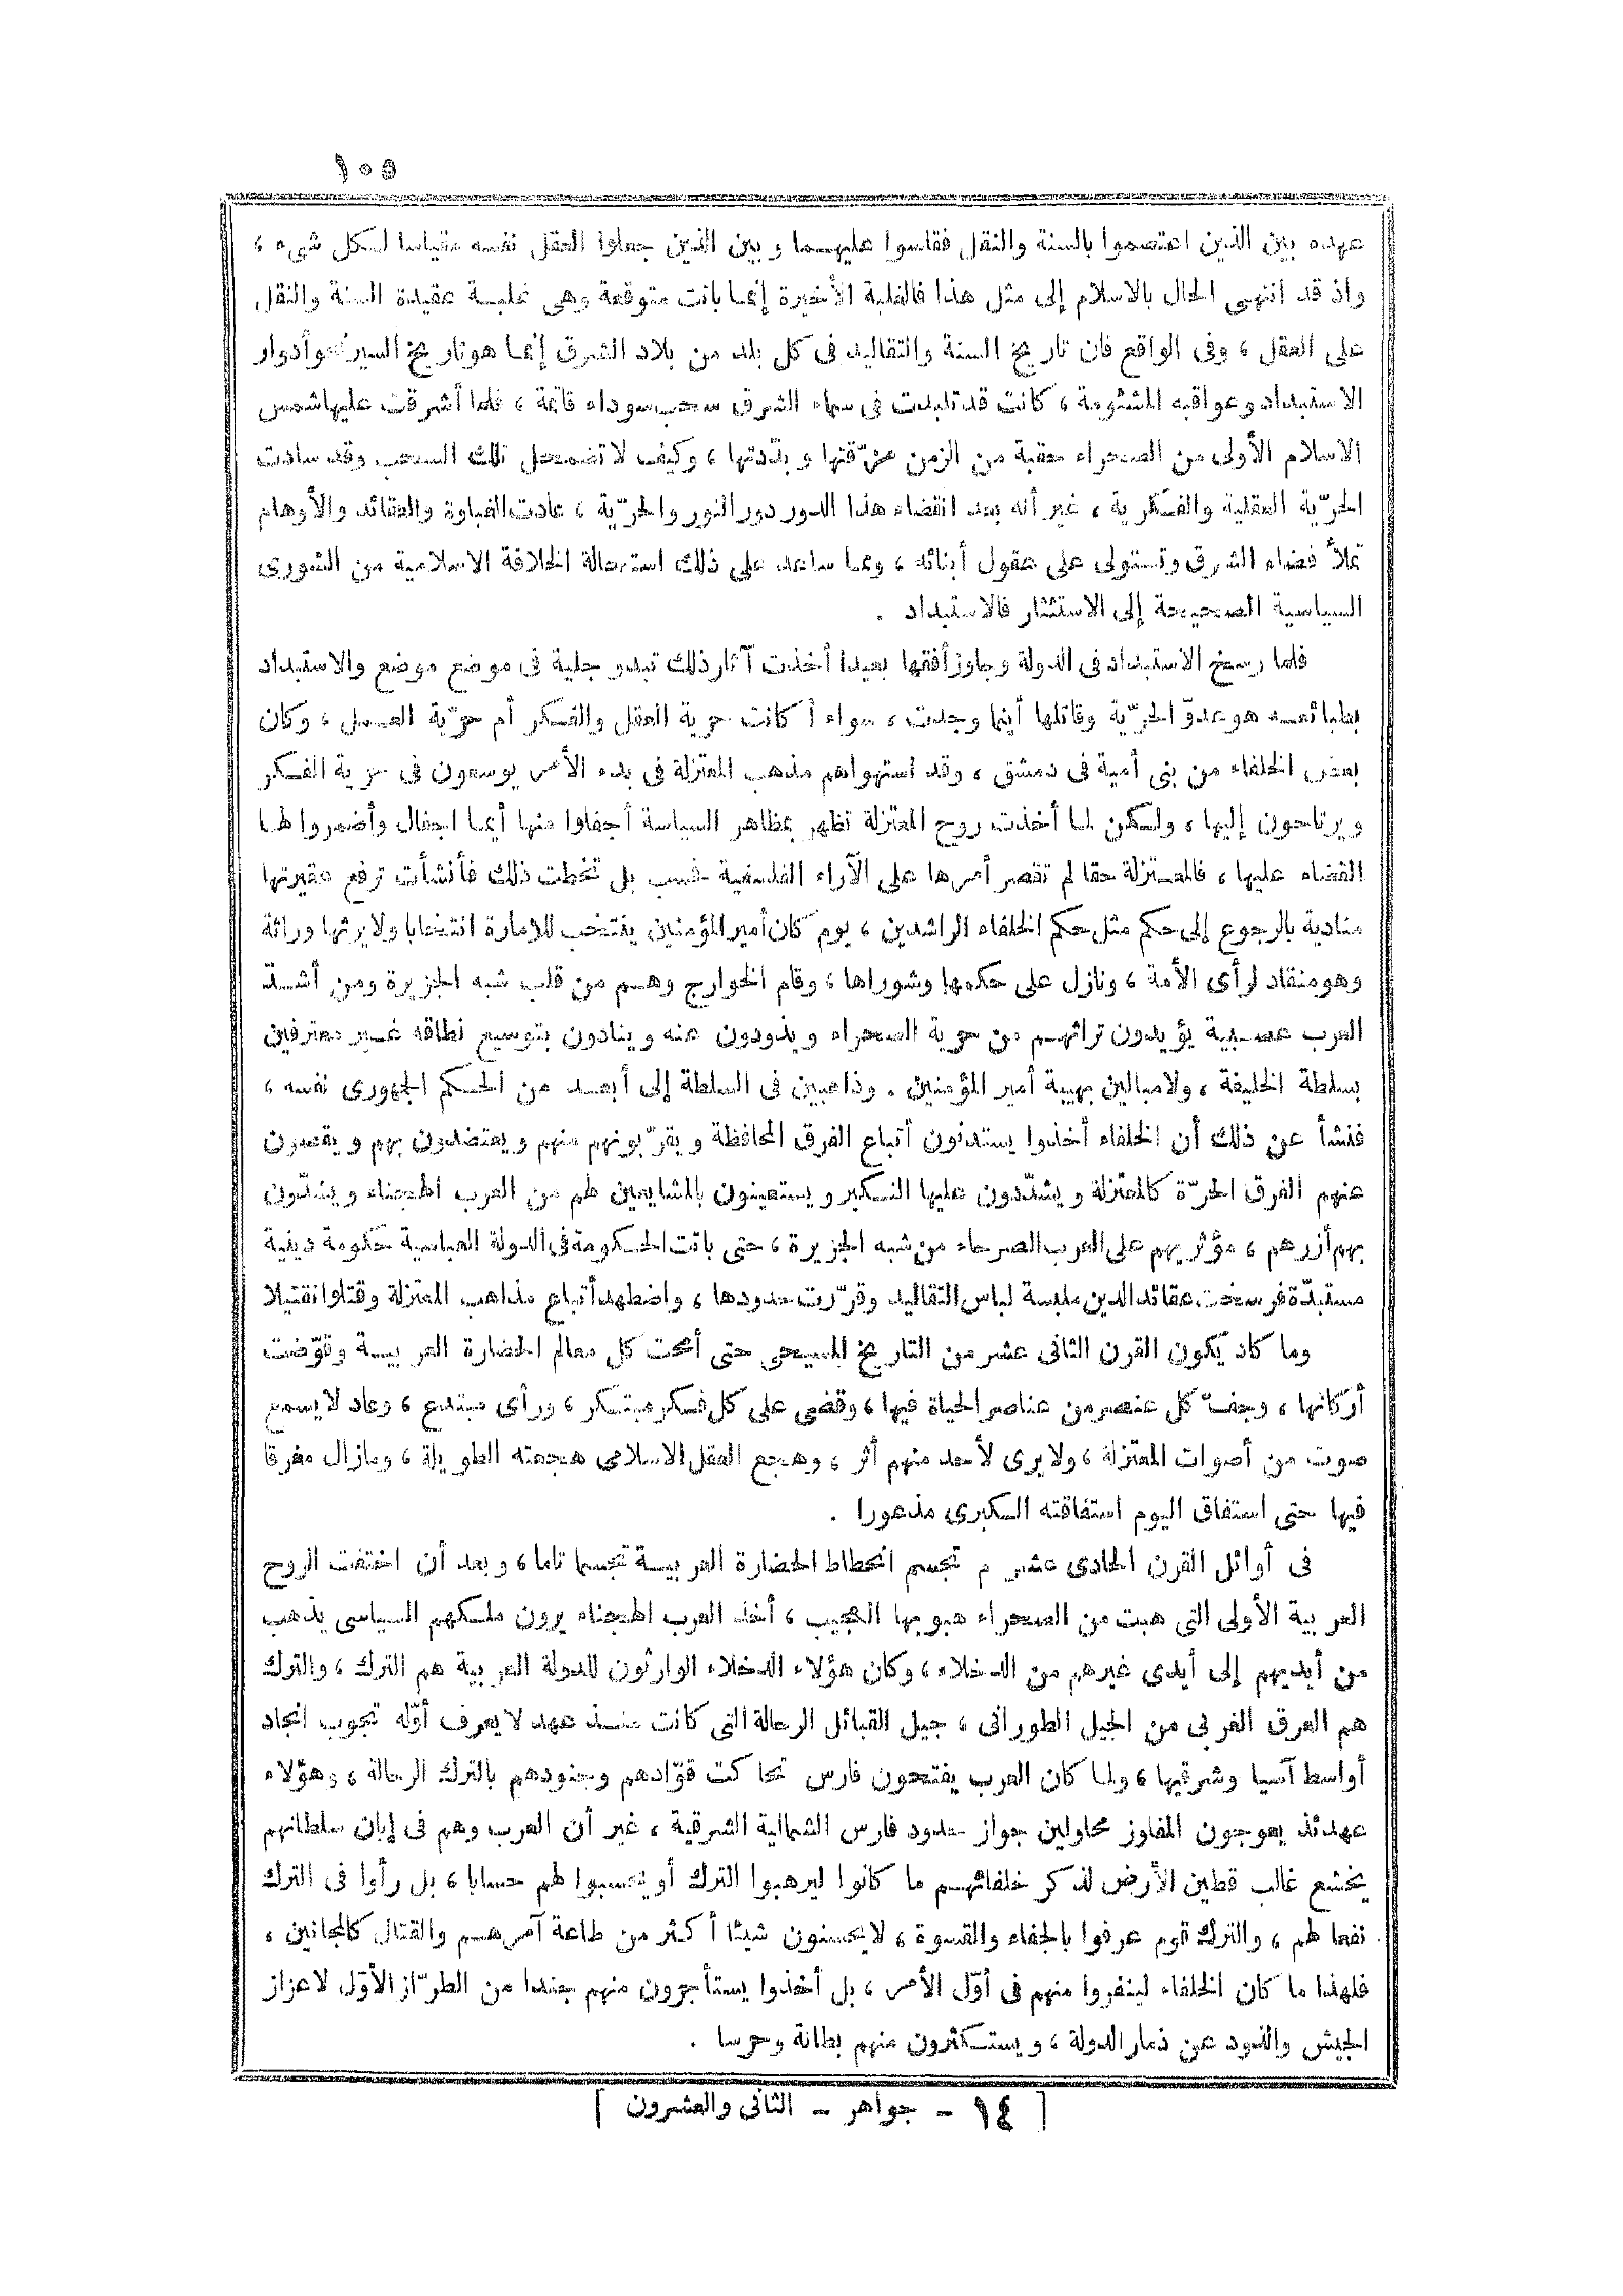 ١٠٥
عهده بين الذين اعتصموا بالسنة والنقل فقاسوا عليهما وبين الذين جعلوا العقل نفسه مقياسا لكل شىء ،
واذ قد انتهى الحال بالاسلام إلى مثل هذا فالغلبة الأخيرة إنما باتت متوقعة وهى غلبة عقيدة السنة والنقل
على العقل ، وفى الواقع فان تاريخ السنة والتقاليد فى كل بلد من بلاد الشرق إنما هو تاريخ السير نحو أدوار
الاستبداد وعواقبه المشئومة ، كانت قد تلبدت فى سماء الشرق سحب سوداء قاتمة ، فلما أشرقت عليها شمس
الاسلام الأولى من الصحراء حقبة من الزمن مزّقتها وبدّدتها ، وكيف لا تضمحل تلك السحب وقد سادت
الحرّية العقلية والفكرية ، غير أنه بعد انقضاء هذا الدور دور النور والحرّية ، عادت الغباوة والعقائد والأوهام
تملأ فضاء الشرق وتستولى على عقول أبنائه ، ومما ساعد على ذلك استحالة الخلافة الاسلامية من الشورى
السياسية الصحيحة إلى الاستئثار فالاستبداد .
فلما رسخ الاستبداد فى الدولة وجاوز أفقها بعيدا أخذت آثار ذلك تبدو جلية فى موضع موضع والاستبداد
بطبائعه هو عدوّ الحرّية وقاتلها أينما وجدت ، سواء أكانت حرية العقل والفكر أم حرّية العمل ، وكان
بعض الخلفاء من بنى أمية فى دمشق ، وقد استهواهم مذهب المعتزلة فى بدء الأمر يوسعون فى حرية الفكر
ويرتاحون إليها ، ولكن لما أخذت روح المعتزلة تظهر بمظاهر السياسة أجفلوا منها أيما اجفال وأضمروا لها
القضاء عليها ، فالمعتزلة حقا لم تقصر أمرها على الآراء الفلسفية فحسب بل تخطت ذلك فأنشأت ترفع عقيرتها
منادية بالرجوع إلى حكم مثل حكم الخلفاء الراشدين ، يوم كان أمير المؤمنين ينتخب للامارة انتخابا ولا يرثها وراثة
وهو منقاد لرأى الأمة ، ونازل على حكمها وشوراها ، وقام الخوارج وهم من قلب شبه الجزيرة ومن أشدّ
العرب عصبية يؤيدون تراثهم من حرية الصحراء ويذودون عنه وينادون بتوسيع نطاقه غير معترفين
بسلطة الخليفة ، ولا مبالين بهيبة أمير المؤمنين . وذاهبين فى السلطة إلى أبعد من الحكم الجمهورى نفسه ،
فنشأ عن ذلك أن الخلفاء أخذوا يستدنون أتباع الفرق المحافظة ويقرّبونهم منهم ويعتضدون بهم ويقصون
عنهم الفرق الحرّة كالمعتزلة ويشدّدون عليها النكير ويستعينون بالمشايعين لهم من العرب الهجناء ويشدّون
بهم أزرهم ، مؤثريهم على العرب الصرحاء من شبه الجزيرة ، حتى باتت الحكومة فى الدولة العباسية حكومة دينية
مستبدّة فرسخت عقائد الدين ملبسة لباس التقاليد وقرّرت حدودها ، واضطهد أتباع مذاهب المعتزلة وقتلوا تقتيلا
وما كاد يكون القرن الثانى عشر من التاريخ المسيحى حتى أمحت كل معالم الحضارة العربية وقوّضت
أركانها ، وجفّ كل عنصر من عناصر الحياة فيها ، وقضى على كل فكر مبتكر ، ورأى مبتدع ، وعاد لا يسمع
صوت من أصوات المعتزلة ، ولا يرى لأحد منهم أثر ، وهجع العقل الاسلامى هجعته الطويلة ، ومازال مغرقا
فيها حتى استفاق اليوم استفاقته الكبرى مذعورا .
فى أوائل القرن الحادى عشر م تجسم انحطاط الحضارة العربية تجسما تاما ، وبعد أن اختفت الروح
العربية الأولى التى هبت من الصحراء هبوبها العجيب ، أخذ العرب الهجناء يرون ملكهم السياسى يذهب
من أيديهم إلى أيدى غيرهم من الدخلاء ، وكان هؤلاء الدخلاء الوارثون للدولة العربية هم الترك ، والترك
هم العرق الغربى من الجيل الطورانى ، جيل القبائل الرحالة التى كانت منذ عهد لا يعرف أوّله تجوب انجاد
أواسط آسيا وشرقيها ، ولما كان العرب يفتحون فارس تحاكت قوّادهم وجنودهم بالترك الرحالة ، وهؤلاء
عهدئذ يموجون المفاوز محاولين جواز حدود فارس الشمالية الشرقية ، غير أن العرب وهم فى إبان سلطانهم
يخشع غالب قطين الأرض لذكر خلفائهم ما كانوا ليرهبوا الترك أو يحسبوا لهم حسابا ، بل رأوا فى الترك
نفعا لهم ، والترك قوم عرفوا بالجفاء والقسوة ، لا يحسنون شيئا أكثر من طاعة آمرهم والقتال كالمجانين ،
فلهذا ما كان الخلفاء لينفروا منهم فى أوّل الأمر ، بل أخذوا يستأجرون منهم جندا من الطرّاز الأوّل لاعزاز
الجيش والذود عن ذمار الدولة ، ويستكثرون منهم بطانة وحرسا .
[ ١٤ - جواهر - الثانى والعشرون ]